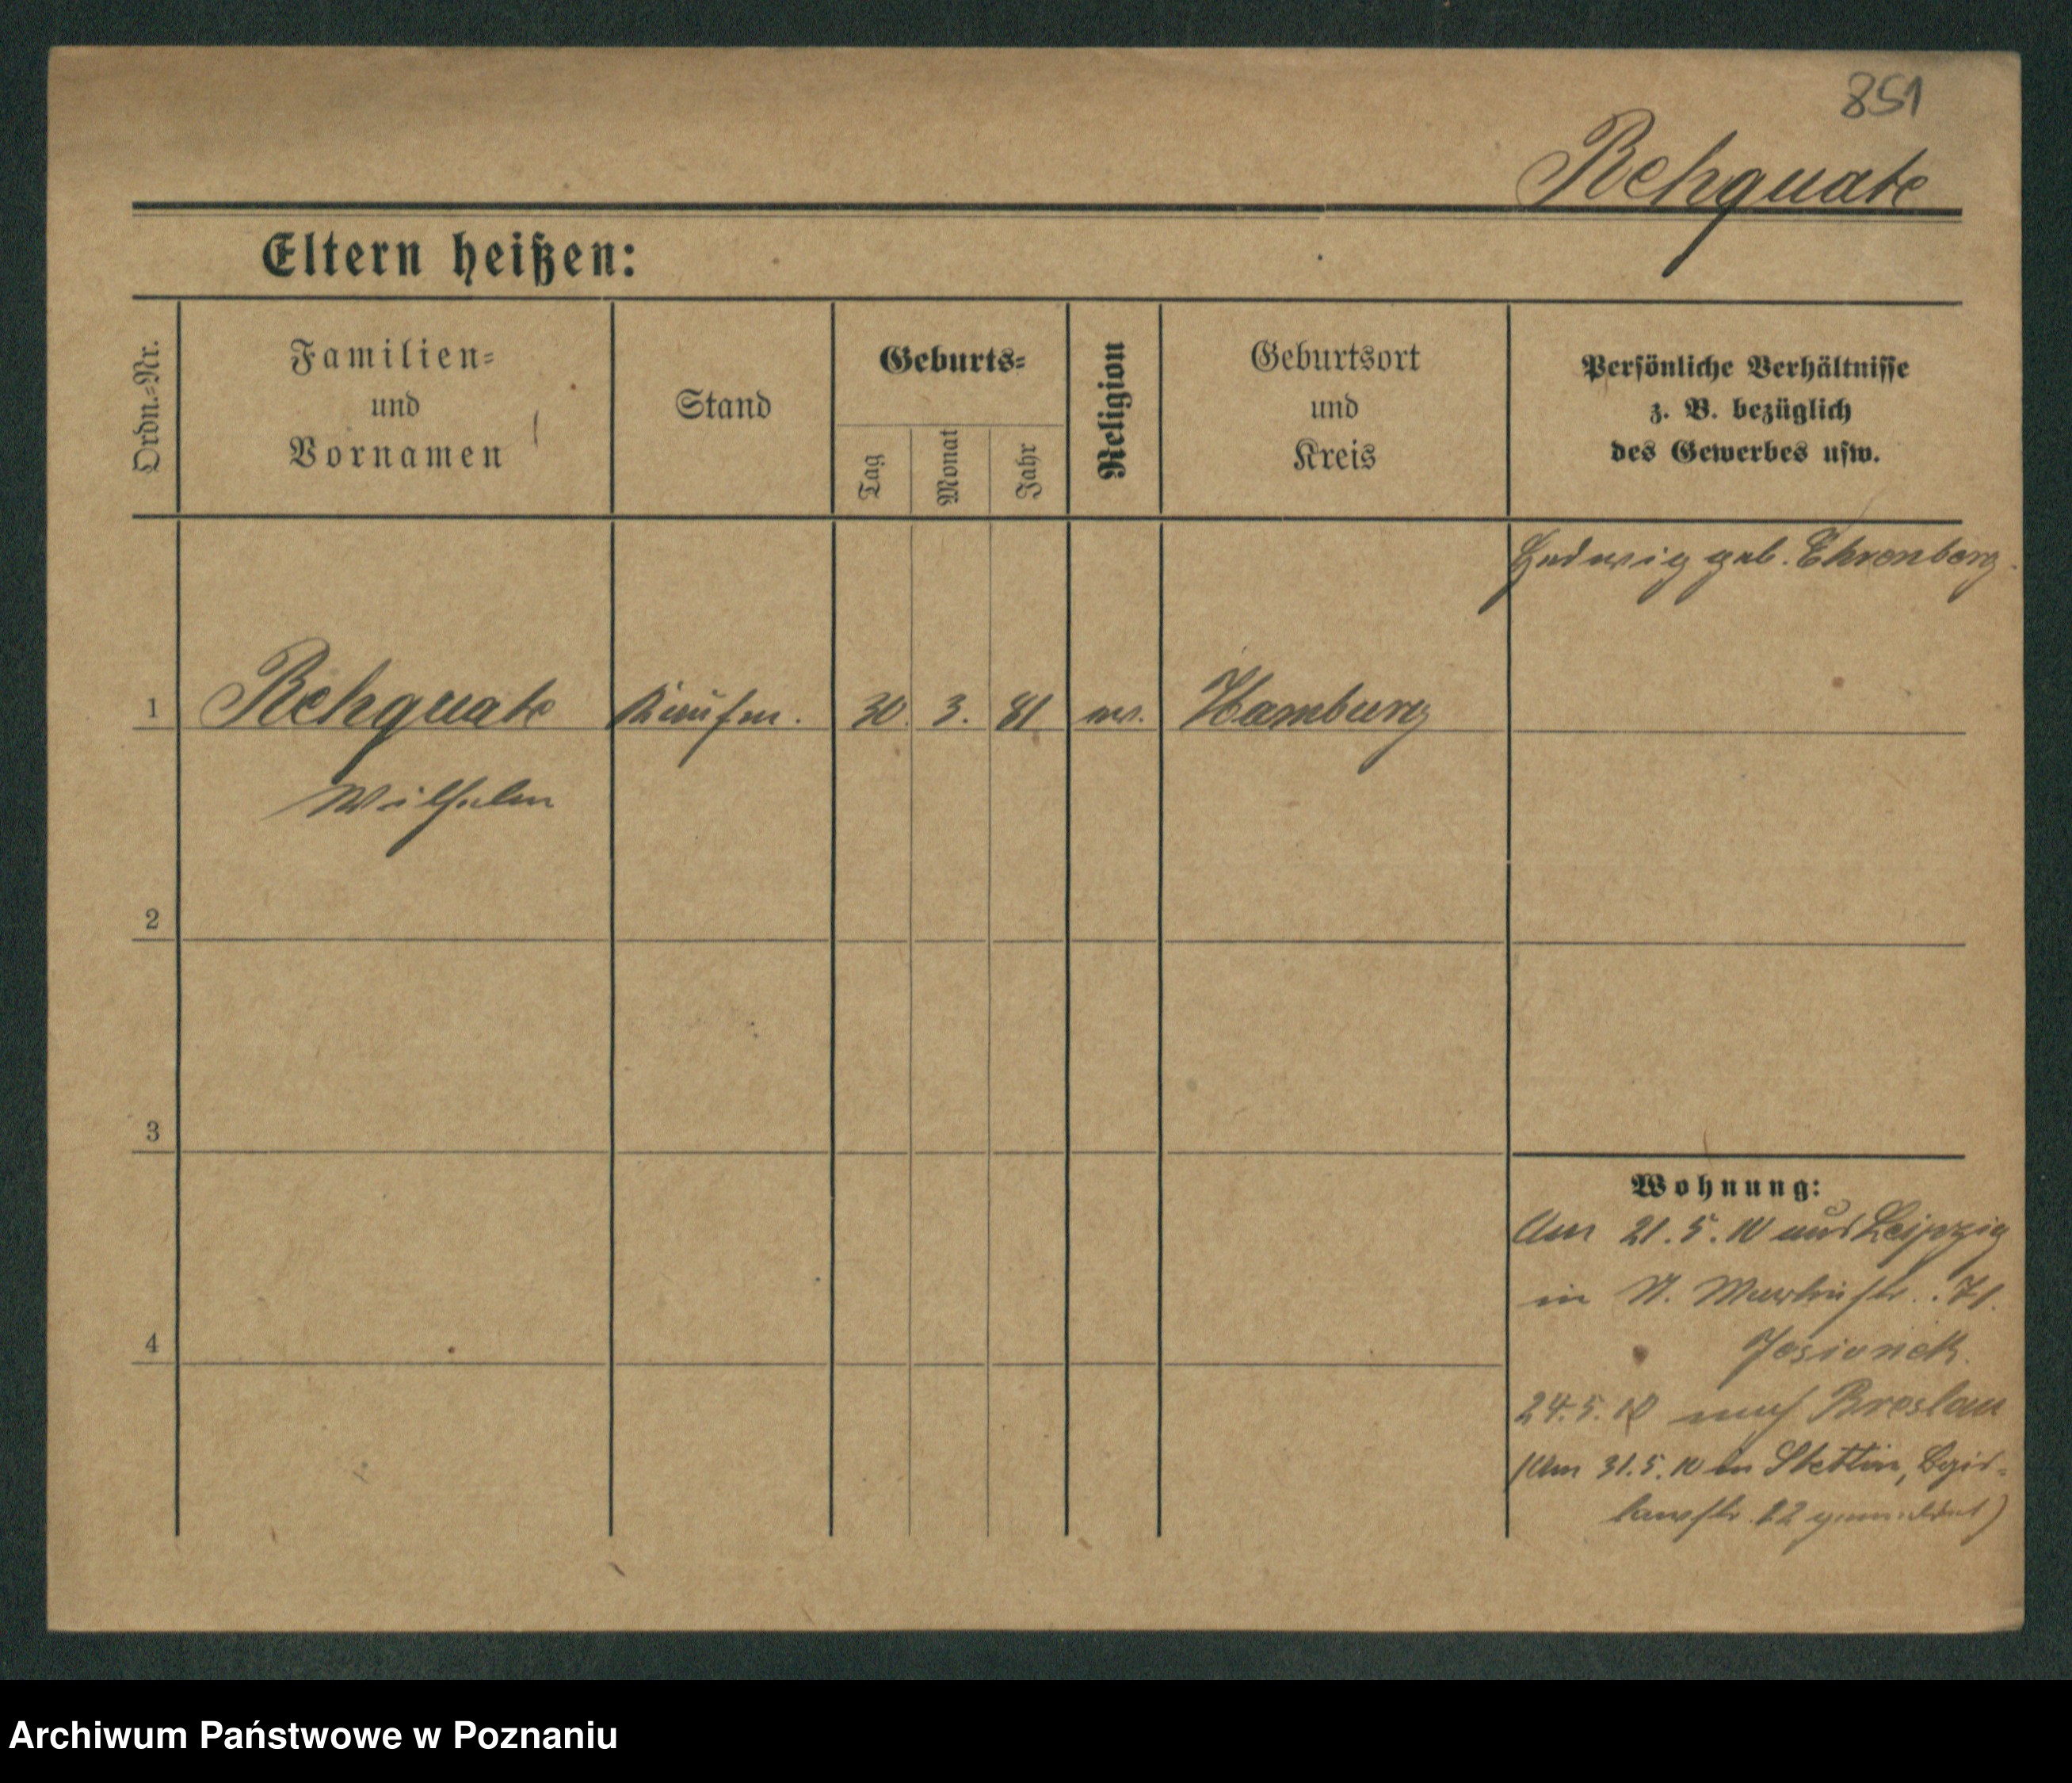 851
Rehquate
Eltern heißen:
Ordn.=Nr.
Familien=
und
Vornamen
Stand
Geburts=
Tag
Monat
Jahr
Religion
Geburtsort
und
Kreis
Persönliche Verhältnisse
z. B. bezüglich
des Gewerbes usw.
Hedwig geb. Ehrenberg.
1 Rehquate Kaufm. 30. 3. 81 ev. Hamburg
Wilhelm
2
3
Wohnung:
Am 21.5.10 aus Leipzig
in N. Martinstr. 71.
4
Josionek.
24.5.10 nach Breslau
(Am 31.5.10 in Stettin,
22 gemeldet)
Archiwum Państwowe w Poznaniu